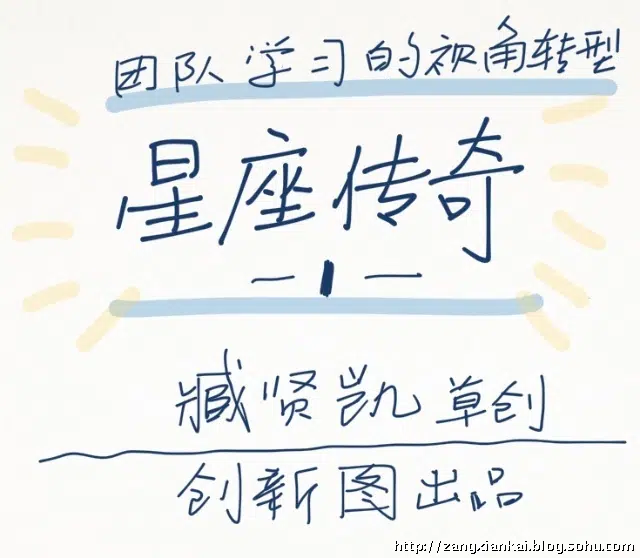 团队学习的视角转型
星座传奇
— 1 —
臧贤凯草创
创新图出品
http://zangxiankai.blog.sohu.com